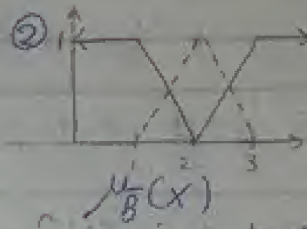 ②
1
1 2 3
μ_B̄(x)